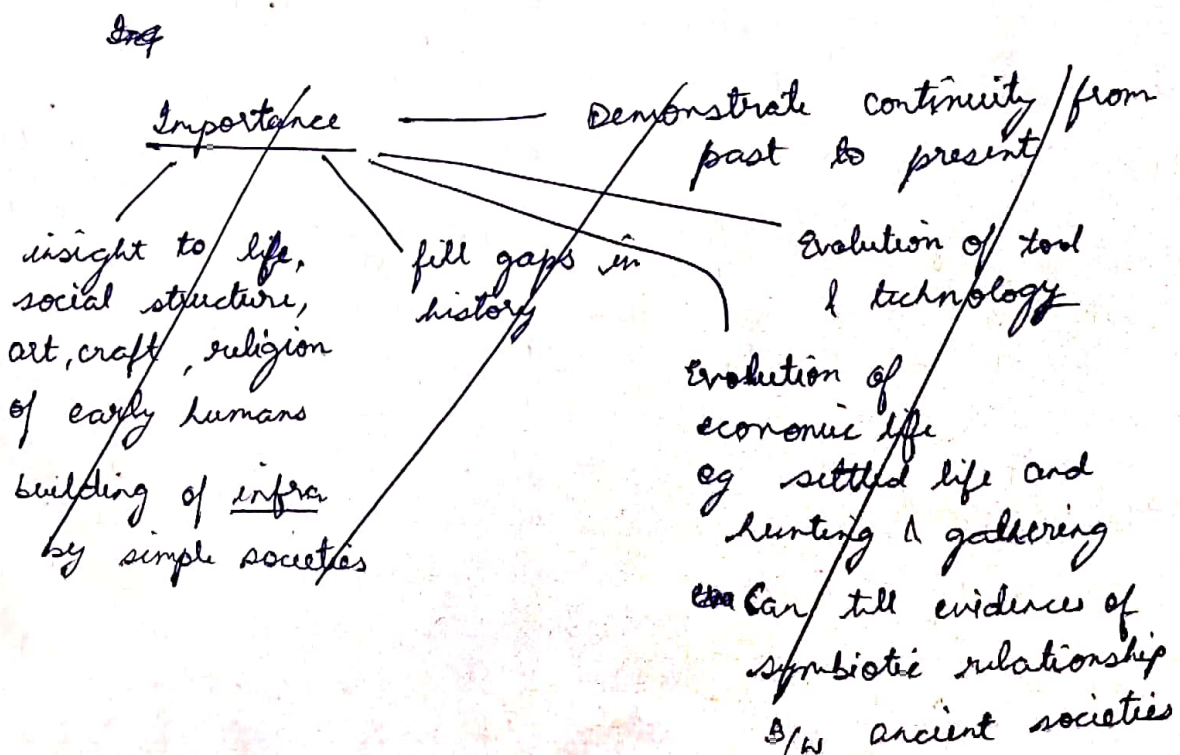 Importance
Demonstrate continuity from
past to present
insight to life,
social structure,
art, craft, religion
of early humans
building of infra
by simple societies
fill gaps in
history
Evolution of tool
& technology
Evolution of
economic life
eg settled life and
hunting & gathering
Can tell evidences of
symbiotic relationship
B/W ancient societies